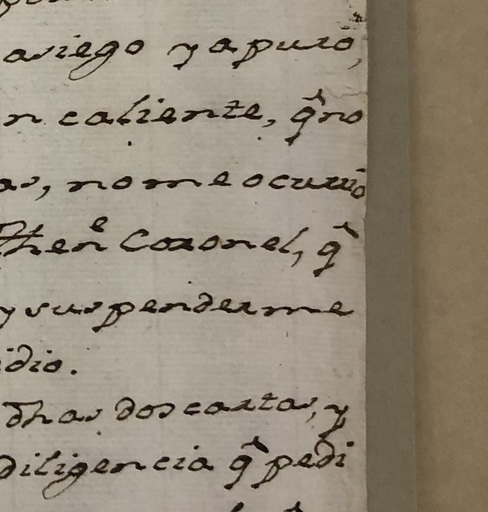 asiego y apuro,
n caliente, q̃ no
as, no me ocurrió
Then.e Coronel, q̃
y suspenderme
idio.
dhas dos cartas, y
diligencia q̃ pedi